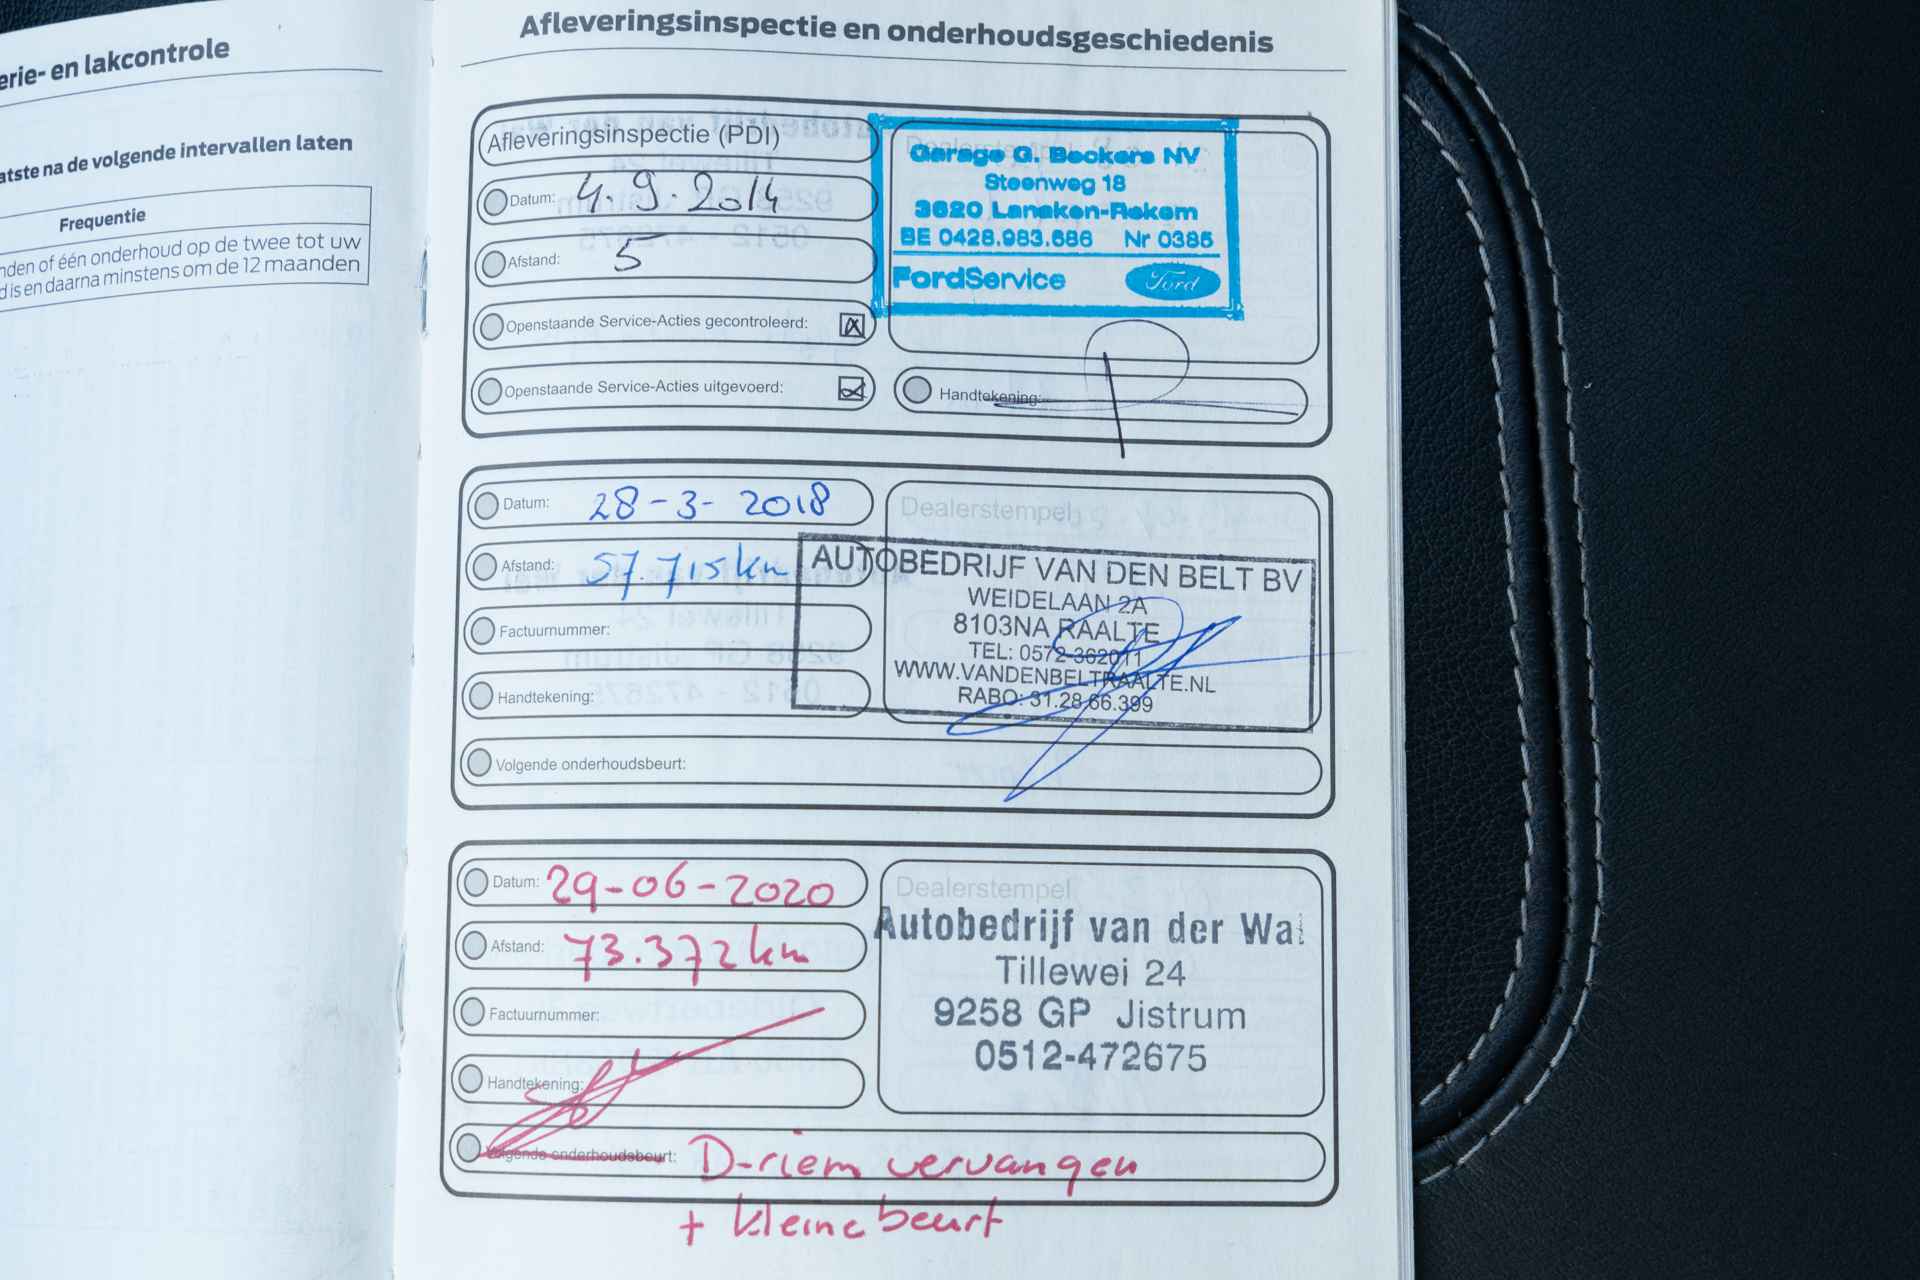 erie- en lakcontrole
atste na de volgende intervallen laten
Frequentie
nden of één onderhoud op de twee tot uw
d is en daarna minstens om de 12 maanden
Afleveringsinspectie en onderhoudsgeschiedenis
Afleveringsinspectie (PDI)
Datum: 4.9.2014
Afstand: 5
Openstaande Service-Acties gecontroleerd:
Openstaande Service-Acties uitgevoerd:
Garage G. Beckers NV
Steenweg 18
3620 Lanaken-Rekem
BE 0428.983.686 Nr 0385
FordService Ford
Handtekening:
Datum: 28-3-2018
Afstand: 57.715km
Factuurnummer:
Handtekening:
Volgende onderhoudsbeurt:
Dealerstempel
AUTOBEDRIJF VAN DEN BELT BV
WEIDELAAN 2A
8103NA RAALTE
TEL: 0572-362011
WWW.VANDENBELTRAALTE.NL
RABO: 31.28.66.399
Datum: 29-06-2020
Afstand: 73.372km
Factuurnummer:
Handtekening:
Volgende onderhoudsbeurt: D-riem vervangen
+ kleine beurt
Dealerstempel
Autobedrijf van der Wa
Tillewei 24
9258 GP Jistrum
0512-472675